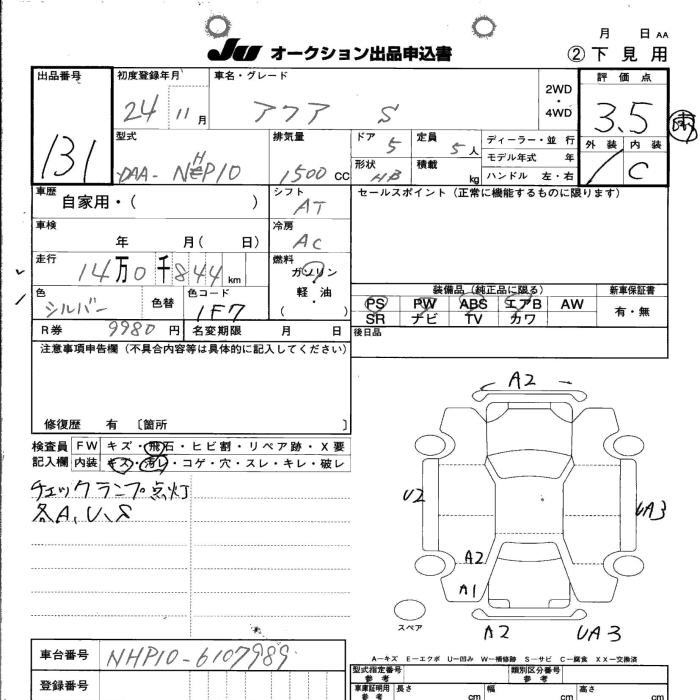 月 日 AA
JU オークション出品申込書 ②下見用
出品番号 131
初度登録年月 24 11月
車名・グレード アクア S
2WD・4WD
評価点 3.5
外装 内装 C
型式 DAA-NHP10
排気量 1500 CC
ドア 5
定員 5人
形状 HB
積載 kg
ディーラー・並行
モデル年式 年
ハンドル 左・右
車歴 自家用・( )
シフト AT
セールスポイント(正常に機能するものに限ります)
車検 年 月( 日)
冷房 AC
走行 14万0千844 km
燃料 ガソリン 軽・油 ( )
色 シルバー 色替
色コード 1F7
装備品(純正品に限る)
PS PW ABS エアB AW
SR ナビ TV カワ
新車保証書 有・無
R券 9980円
名変期限 月 日
後日品
注意事項申告欄(不具合内容等は具体的に記入してください)
修復歴 有 〔箇所 〕
検査員記入欄
FW キズ・飛石・ヒビ割・リペア跡・X要
内装 キズ・汚レ・コゲ・穴・スレ・キレ・破レ
チェックランプ点灯
各A、U、S
A2
U2
UA3
A2
A1
A2
UA3
スペア
A-キズ E-エクボ U-凹み W-補修跡 S-サビ C-腐食 XX-交換済
車台番号 NHP10-6107989
登録番号
型式指定番号 参考
類別区分番号 参考
車庫証明用 参考
長さ cm
幅 cm
高さ cm